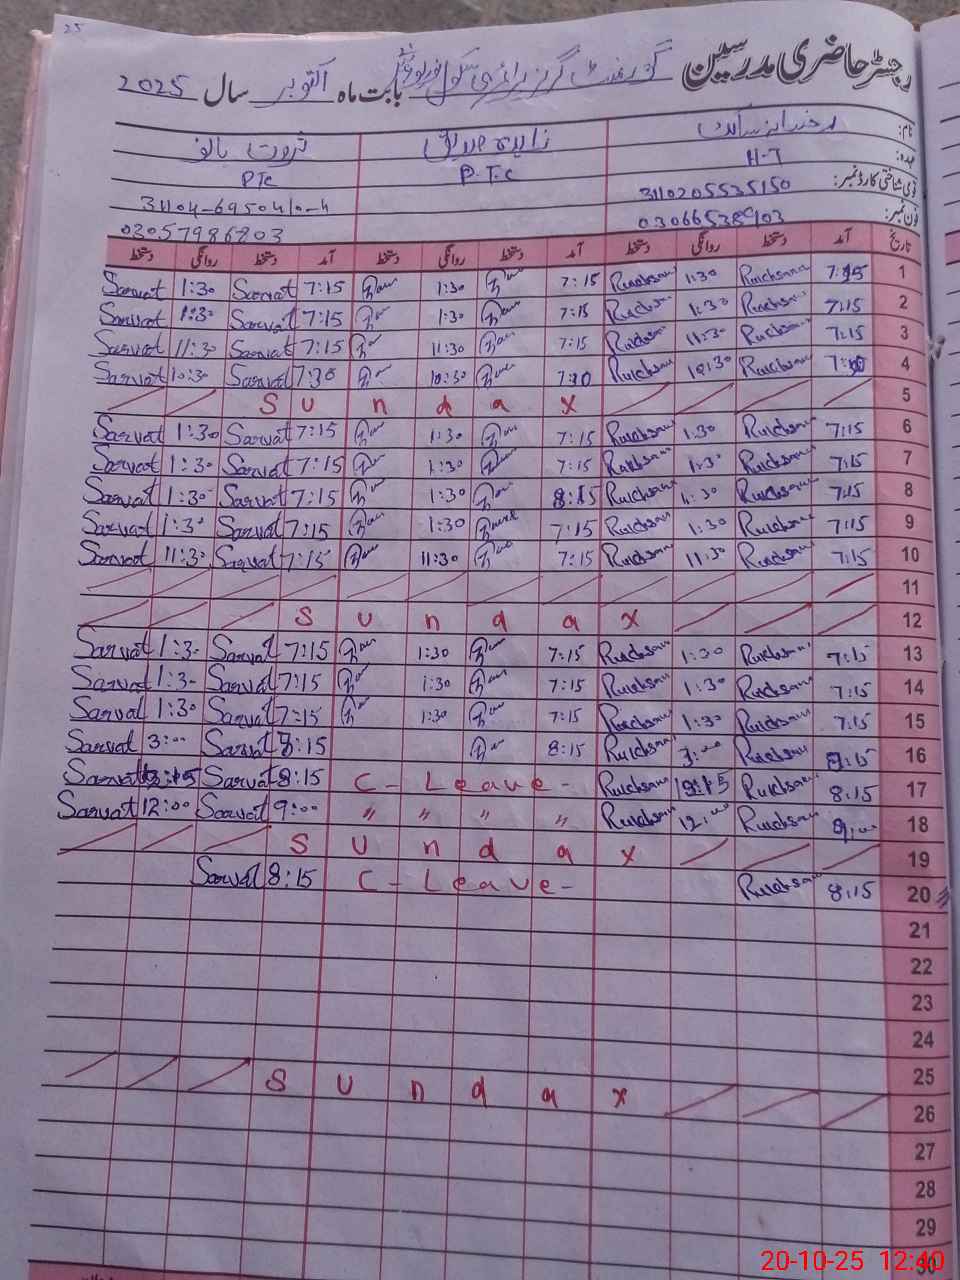 25
رجسٹر حاضری مدرسین گورنمنٹ گرلز پرائمری سکول بابت ماہ اکتوبر سال 2025
نام: زاہدہ ثروت بانو
عہدہ: H-T P.T.C PTC
قومی شناختی کارڈ نمبر: 3110205535150 31104-6950410-4
فون نمبر: 03066538903 03057986803
تاریخ آمد دستخط روانگی دستخط آمد دستخط روانگی دستخط آمد دستخط روانگی دستخط
Sarvat 1:30 Sarvat 7:15 1:30 7:15 Rukhsana 1:30 Rukhsana 7:15 1
Sarvat 1:30 Sarvat 7:15 1:30 7:15 Rukhsana 1:30 Rukhsana 7:15 2
Sarvat 11:30 Sarvat 7:15 11:30 7:15 Rukhsana 11:30 Rukhsana 7:15 3
Sarvat 10:30 Sarvat 7:30 10:30 Rukhsana 10:30 Rukhsana 4
S u n d a y 5
Sarvat 1:30 Sarvat 7:15 1:30 7:15 Rukhsana 1:30 Rukhsana 7:15 6
Sarvat 1:30 Sarvat 7:15 1:30 7:15 Rukhsana 1:30 Rukhsana 7:15 7
Sarvat 1:30 Sarvat 7:15 1:30 8:15 Rukhsana 1:30 Rukhsana 7:15 8
Sarvat 1:30 Sarvat 7:15 1:30 7:15 Rukhsana 1:30 Rukhsana 7:15 9
Sarvat 11:30 Sarvat 7:15 11:30 7:15 Rukhsana 11:30 Rukhsana 7:15 10
11
S u n d a y 12
Sarvat 1:30 Sarvat 7:15 1:30 7:15 Rukhsana 1:30 Rukhsana 7:15 13
Sarvat 1:30 Sarvat 7:15 1:30 7:15 Rukhsana 1:30 Rukhsana 7:15 14
Sarvat 1:30 Sarvat 7:15 1:30 7:15 Rukhsana 1:30 Rukhsana 7:15 15
Sarvat 3:00 Sarvat 8:15 8:15 Rukhsana 3:00 Rukhsana 8:15 16
Sarvat Sarvat 8:15 C - Leave - Rukhsana Rukhsana 8:15 17
Sarvat 12:00 Sarvat 9:00 " " " " Rukhsana 12:00 Rukhsana 9:00 18
S u n d a y 19
Sarvat 8:15 C - Leave - Rukhsana 8:15 20
21
22
23
24
25
S u n d a y 26
27
28
29
30
20-10-25 12:40